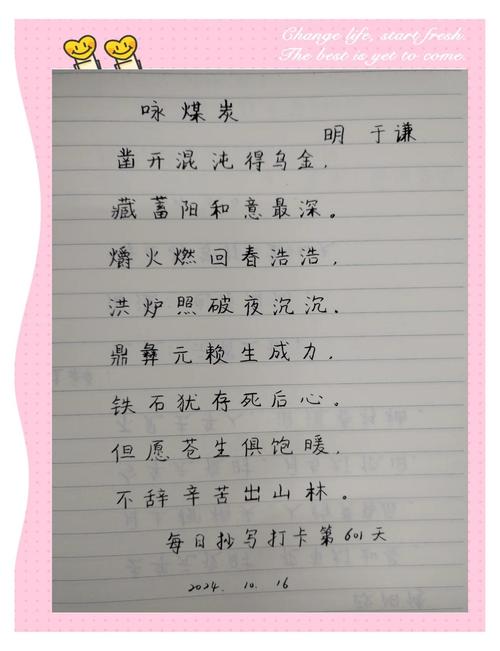 Change life, start fresh.
The best is yet to come.
咏煤炭
明 于谦
凿开混沌得乌金，
藏蓄阳和意最深。
爝火燃回春浩浩，
洪炉照破夜沉沉。
鼎彝元赖生成力，
铁石犹存死后心。
但愿苍生俱饱暖，
不辞辛苦出山林。
每日抄写打卡第601天
2024. 10. 16